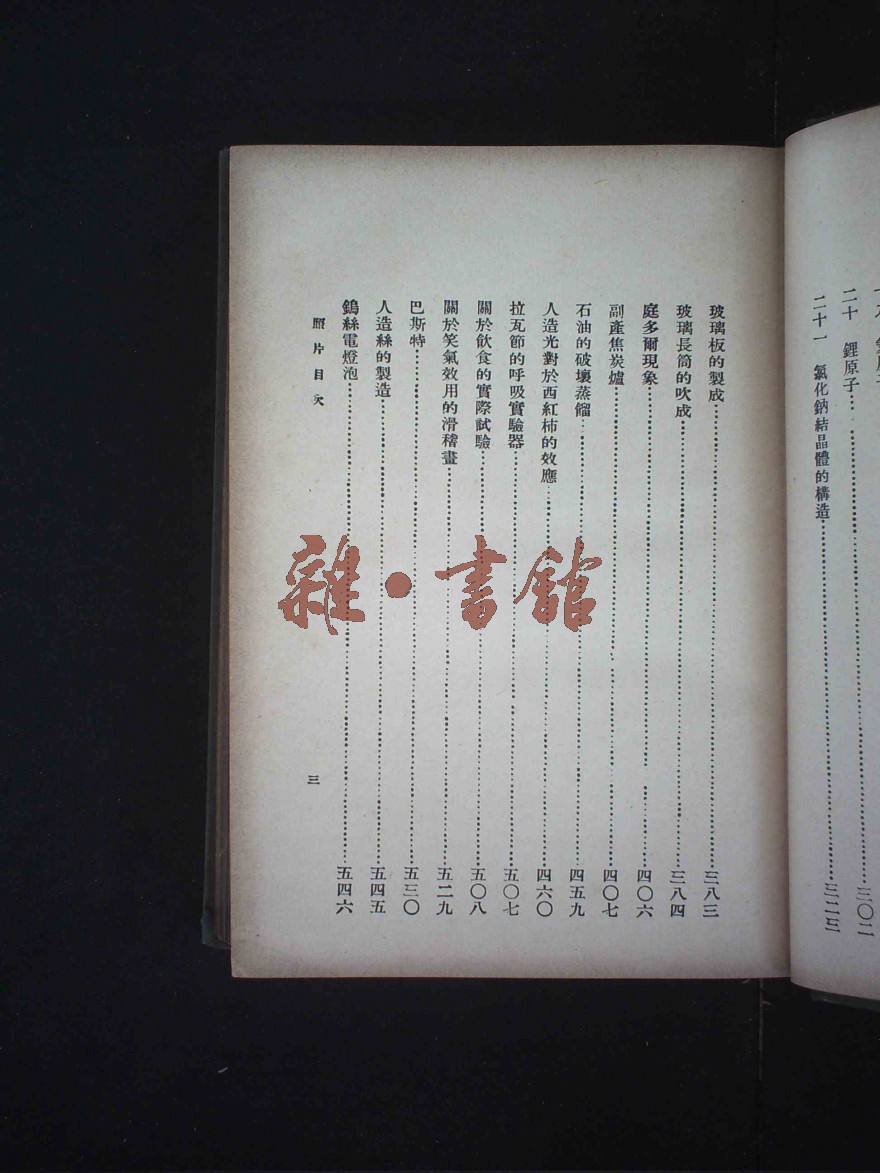 二十 鋰原子……三〇二
二十一 氯化鈉結晶體的構造……三二三
玻璃板的製成……三八三
玻璃長筒的吹成……三八四
庭多爾現象……四〇六
副產焦炭爐……四〇七
石油的破壞蒸餾……四五九
人造光對於西紅柿的效應……四六〇
拉瓦節的呼吸實驗器……五〇七
關於飲食的實際試驗……五〇八
關於笑氣效用的滑稽畫……五二九
巴斯特……五三〇
人造絲的製造……五四五
鎢絲電燈泡……五四六
照片目次
三
雜·書館